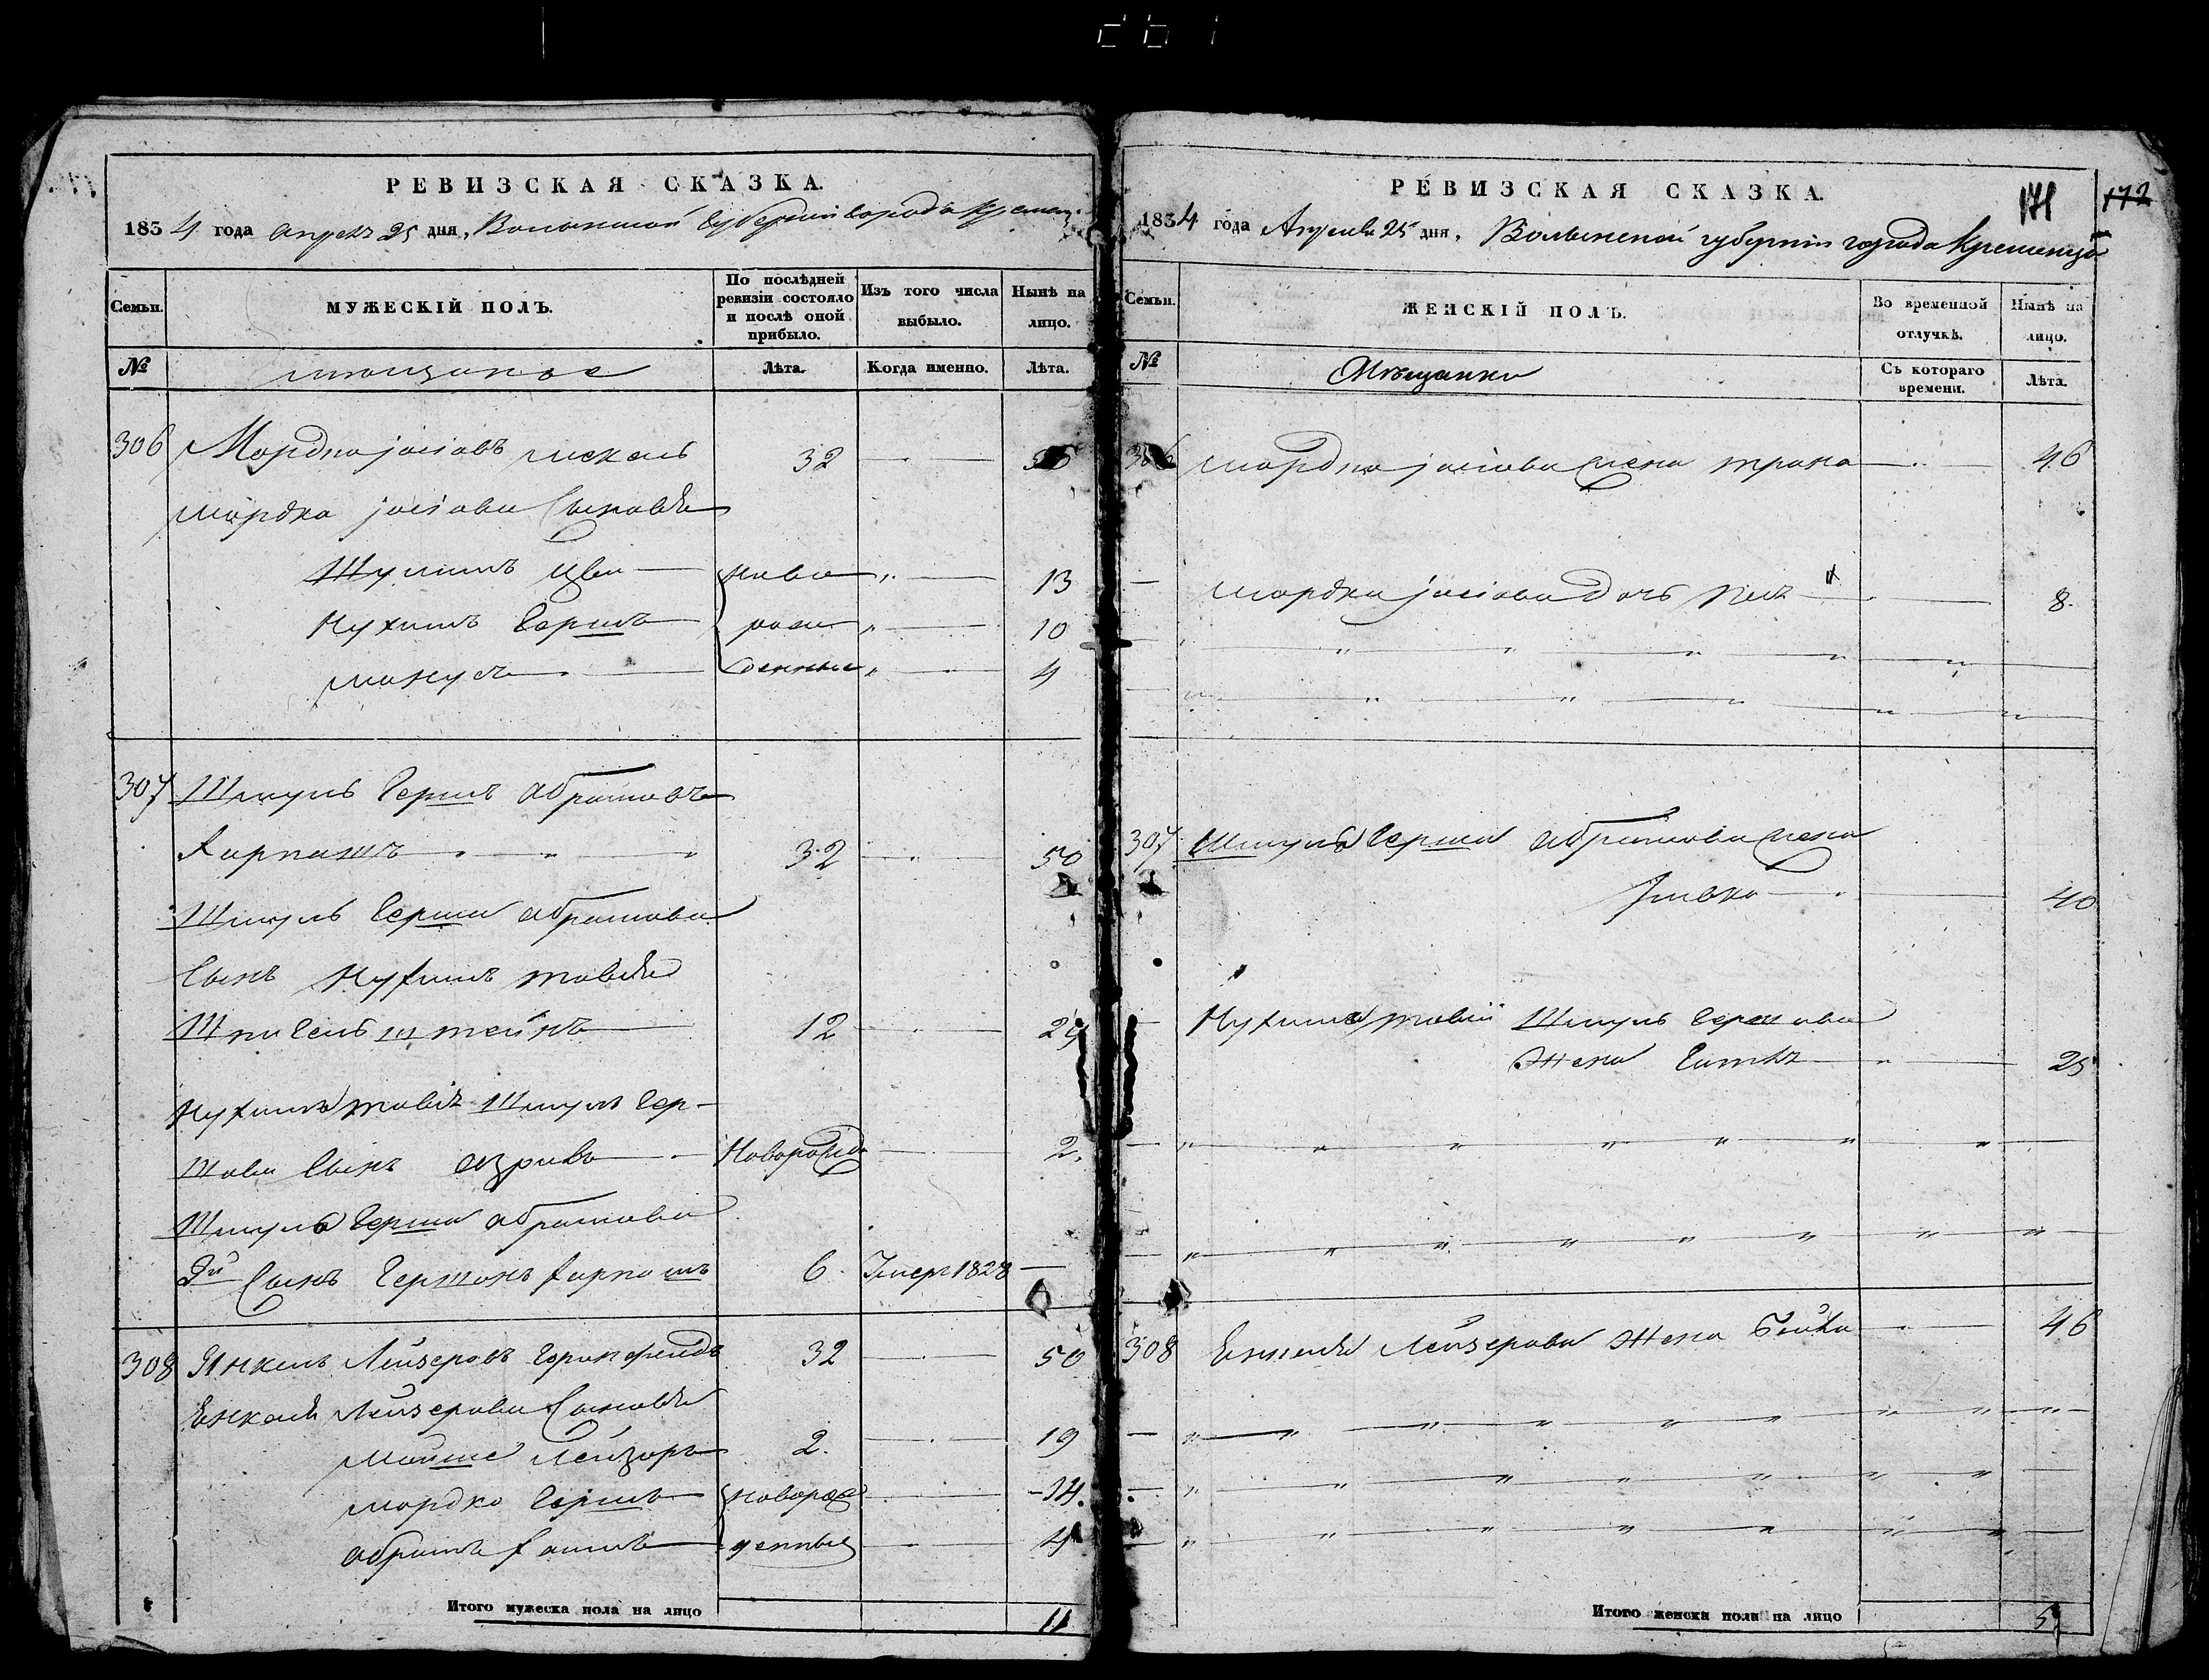 РЕВИЗСКАЯ СКАЗКА.
1834 года апреля 25 дня, Волынской Губернии города Кременца
Семьи.
МУЖЕСКІЙ ПОЛЪ.
По послѣдней ревизіи состояло и послѣ оной прибыло.
Изъ того числа выбыло.
Нынѣ на лицо.
№
мещане
Лѣта.
Когда именно.
Лѣта.
306 Мордко Јосіовъ 32
Мордка Јосіова Сыновья
Шулимъ Цви ново 13
Нухимъ Гершъ рож 10
Манусъ денные 4
307 Шмуль Гершъ Абрамовъ
32 50
Шмуль Герша Абрамова
Сынъ Нухимъ Товія
Шпигельштейнъ 12 29
Нухимъ Товія Шмуль Гер-
шова Сынъ Новорожд 2.
Шмуль Герша Абрамова
2й Сынъ Гершонъ 6. Умеръ 1828
308 Янкель Лейзеровъ 32 50
Енкеля Лейзерова Сыновья
Мойше Лейзоръ 2. 19
Мордко Гершъ новорож 14.
Абрамъ Хаимъ денные 4
Итого мужеска пола на лицо 11
РЕВИЗСКАЯ СКАЗКА.
171
172
1834 года Апреля 25 дня, Волынской губернии города Кременца
Семьи.
ЖЕНСКІЙ ПОЛЪ.
Во временной отлучкѣ.
Нынѣ на лицо.
№
Мещанки
Съ котораго времени.
Лѣта.
306 Мордка Јосіова жена 46
Мордка Јосіова дочь 8.
307 Шмуль Герша Абрамова жена
40
Нухима Товіи Шмуль Гершова
Жена 25
308 Енкеля Лейзерова Жена Бейла 46
Итого женска пола на лицо 5